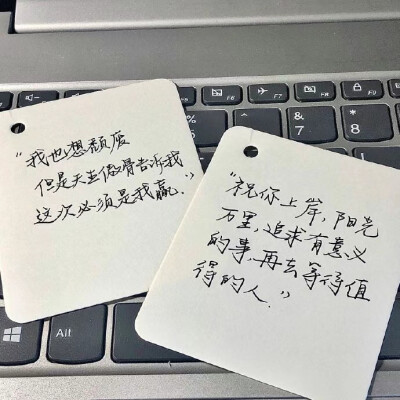 "我也想颓废
但是天生傲骨告诉我
这次必须是我赢."
"祝你上岸,阳光
万里,追求有意义
的事,再去等待值
得的人."
F6
F7
F8
&
7
*
8
Alt